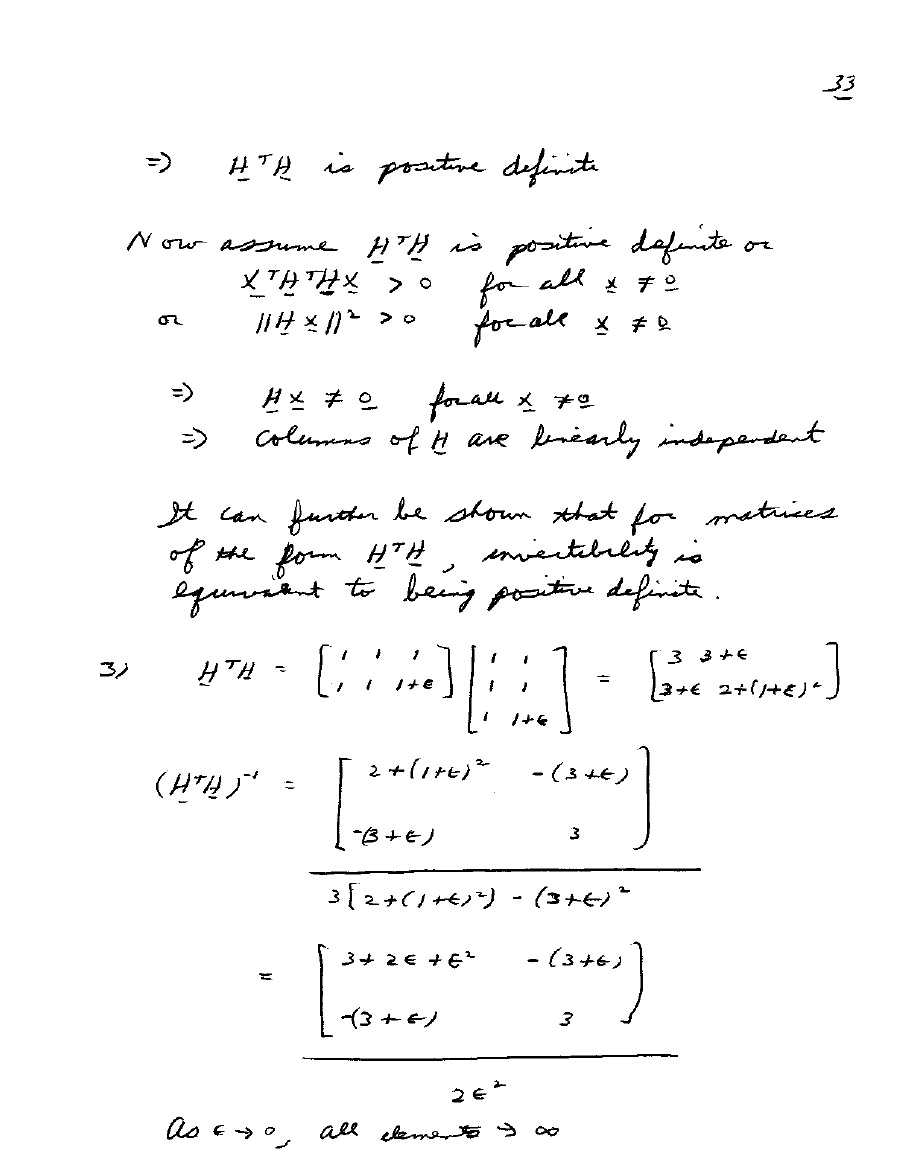 33
=> H^T H is positive definite
Now assume H^T H is positive definite or
x^T H^T H x > 0 for all x ≠ 0
or ||H x||^2 > 0 for all x ≠ 0
=> H x ≠ 0 for all x ≠ 0
=> columns of H are linearly independent
It can further be shown that for matrices
of the form H^T H, invertibility is
equivalent to being positive definite.
3) H^T H = [1 1 1; 1 1 1+ε] [1 1; 1 1; 1 1+ε] = [3 3+ε; 3+ε 2+(1+ε)^2]
(H^T H)^-1 = [2+(1+ε)^2 -(3+ε); -(3+ε) 3]
3[2+(1+ε)^2] - (3+ε)^2
= [3+2ε+ε^2 -(3+ε); -(3+ε) 3]
2ε^2
As ε → 0, all elements → ∞